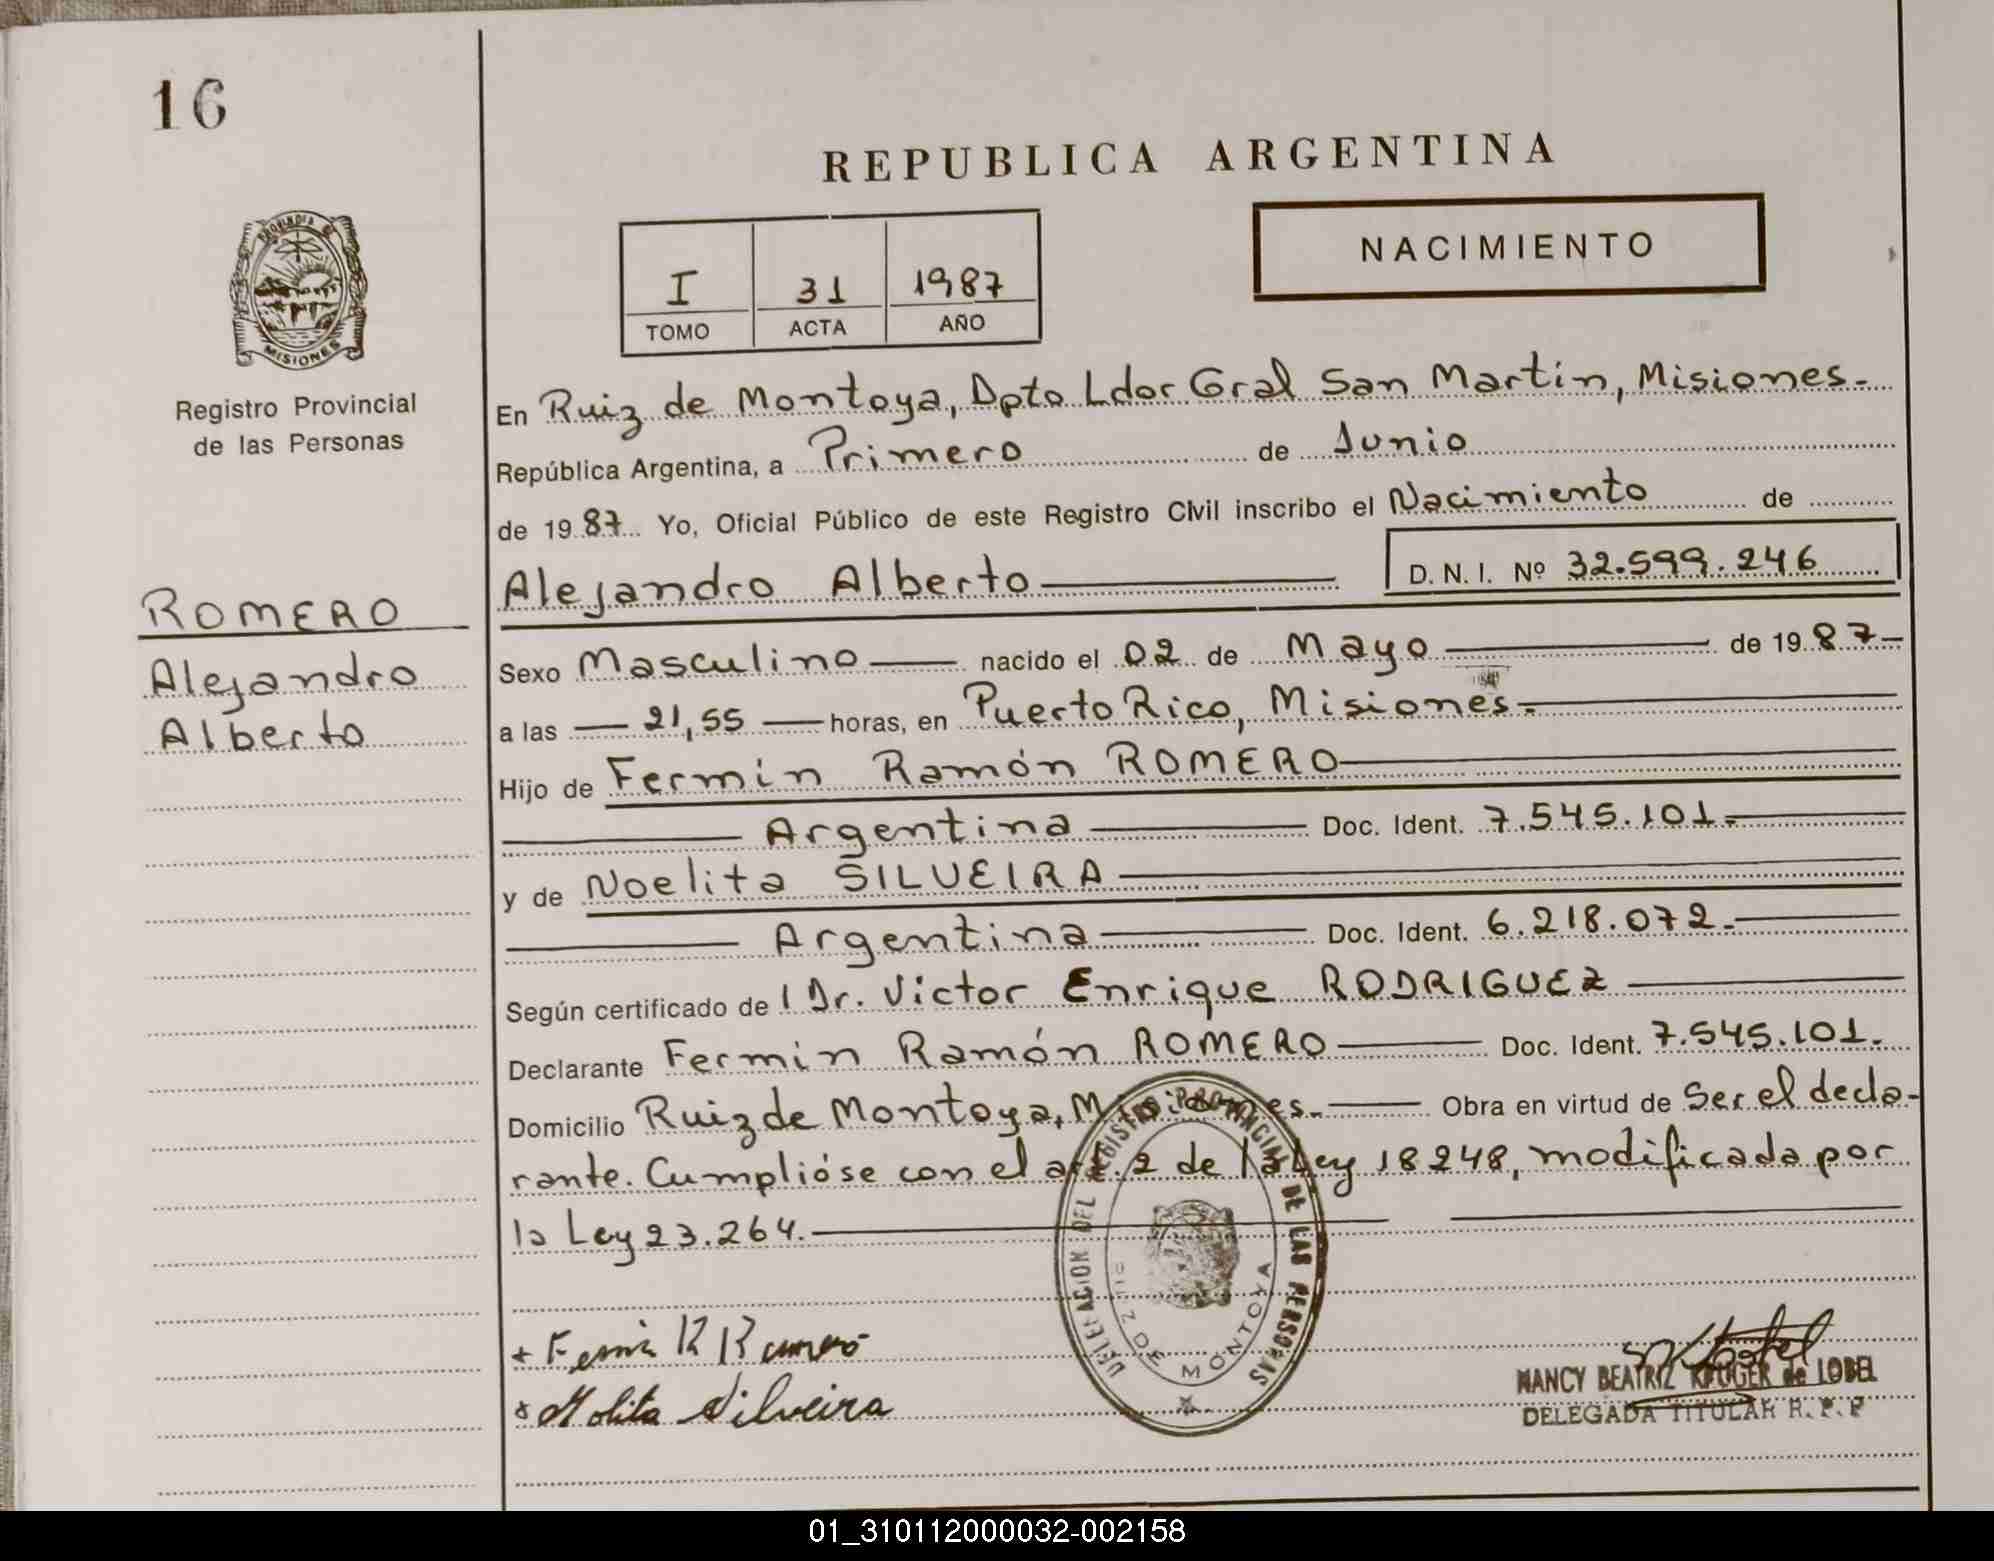 16
REPUBLICA ARGENTINA
NACIMIENTO
I 31 1987
TOMO ACTA AÑO
PROVINCIA DE
MISIONES
Registro Provincial
de las Personas
En Ruiz de Montoya, Dpto Ldor Gral San Martin, Misiones.
República Argentina, a Primero de Junio
de 1987 Yo, Oficial Público de este Registro Civil inscribo el Nacimiento de
Alejandro Alberto D. N. I. Nº 32.599.246
ROMERO
Alejandro
Alberto
Sexo Masculino nacido el 02 de Mayo de 1987
a las 21,55 horas, en Puerto Rico, Misiones.
Hijo de Fermin Ramón ROMERO
Argentina Doc. Ident. 7.545.101.
y de Noelita SILVEIRA
Argentina Doc. Ident. 6.218.072.
Según certificado del Dr. Victor Enrique RODRIGUEZ
Declarante Fermin Ramón ROMERO Doc. Ident. 7.545.101.
Domicilio Ruiz de Montoya, Misiones. Obra en virtud de Ser el decla-
rante. Cumplióse con el art. 2 de la Ley 18248, modificada por
la Ley 23.264.
DELEGACION DEL REGISTRO PROVINCIAL DE LAS PERSONAS
RUIZ DE MONTOYA
+ Fermin R Romero
x Nolita Silveira
NANCY BEATRIZ KRUGER de LOBEL
DELEGADA TITULAR R. P. P
01_310112000032-002158